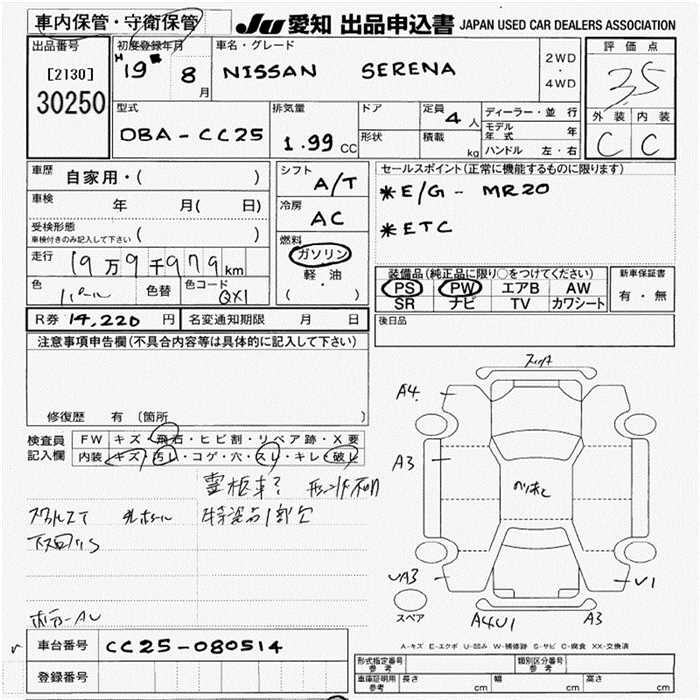 車内保管・守衛保管 JU 愛知 出品申込書 JAPAN USED CAR DEALERS ASSOCIATION
出品番号 初度登録年月 車名・グレード 評価点
[2130] H 19 8 月 NISSAN SERENA 2WD・4WD 3.5
30250
型式 排気量 ドア 定員 4 人 ディーラー・並行 外装 内装
DBA-CC25 1.99 CC 形状 積載 kg モデル年式 年 C C
ハンドル 左・右
車歴 自家用・( ) シフト A/T セールスポイント(正常に機能するものに限ります)
車検 年 月( 日) 冷房 AC *E/G- MR20
受検形態 ( ) *ETC
車検付きのみ記入して下さい
走行 19万9千979km 燃料 ガソリン 軽・油 ( ・ )
色 パール 色替 色コード QX1
装備品(純正品に限り○をつけてください) 新車保証書
PS PW エアB AW 有・無
SR ナビ TV カワシート
R券 14,220 円 名変通知期限 月 日 後日品
注意事項申告欄(不具合内容等は具体的に記入して下さい)
修復歴 有 〔箇所 〕
検査員記入欄 FW キズ・飛石・ヒビ割・リペア跡・X要
内装 キズ・汚レ・コゲ・穴・スレ・キレ・破レ
霊柩車?
下回りS
ボデーAU
A4
A3
UA3
V1
A4U1
A3
スペア
A-キズ E-エクボ U-凹み W-補修跡 S-サビ C-腐食 XX-交換済
車台番号 CC25-080514
登録番号
形式指定番号 参考 類別区分番号 参考
車庫証明用 参考 長さ cm 幅 cm 高さ cm